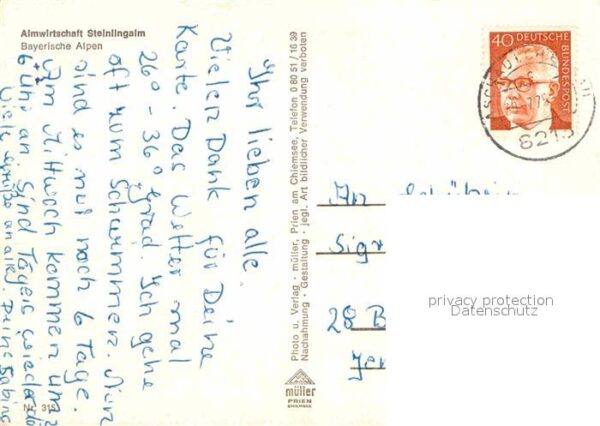 Almwirtschaft Steinlingalm
Bayerische Alpen
Ihr lieben alle.
Vielen Dank für Deine
Karte. Das Wetter mal
26° - 36° Grad. Ich gehe
oft zum Schwimmen. Nun
sind es nur noch 6 Tage.
Am Mittwoch kommen um 2
6 Uhr an. Sind Tägers wieder da
Viele Grüße an alle. Deine Sabine
Nr. 315
Photo u. Verlag · müller, Prien am Chiemsee, Telefon 0 80 51 / 16 39
Nachahmung · Gestaltung · jegl. Art bildlicher Verwendung verboten
müller
PRIEN
CHIEMSEE
40 DEUTSCHE
BUNDESPOST
ASCHAU I. CHIEMGAU
8213
An
Sigr
28 B
Jer
privacy protection
Datenschutz